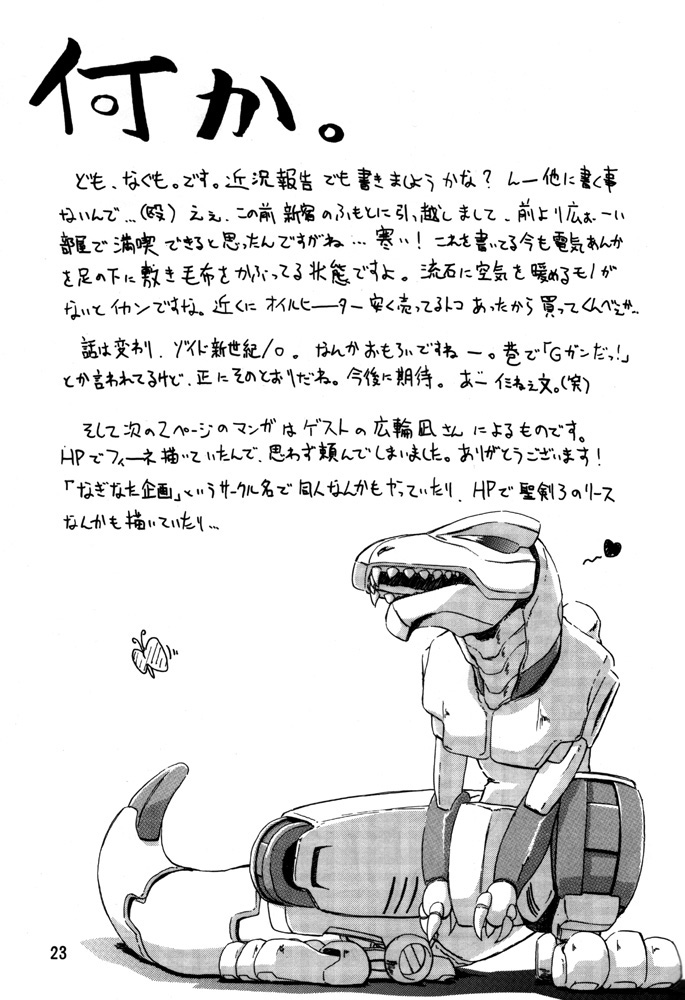 何か。
ども、なぐも。です。近況報告でも書きましようかな? んー他に書く事
ないんで…(殴) えぇ、この前新宿のふもとに引っ越しまして、前より広ぉーい
部屋で満喫できると思ったんですがね…寒い! これを書いてる今も電気あんか
を足の下に敷き毛布をかぶってる状態ですよ。流石に空気を暖めるモノが
ないとイカンですな。近くにオイルヒーター安く売ってるトコあったから買ってくんべぇか…
話は変わり、ゾイド新世紀/0。なんかおもろいですねー。巷で「Gガンだっ!」
とか言われてるけど、正にそのとおりだね。今後に期待。あー仁ねぇ文。(笑)
そして次の2ページのマンガはゲストの広輪凪さんによるものです。
HPでフィーネ描いていたんで、思わず頼んでしまいました。ありがとうございます!
「なぎなた企画」というサークル名で同人なんかもやっていたり、HPで聖剣3のリース
なんかも描いていたり…
23